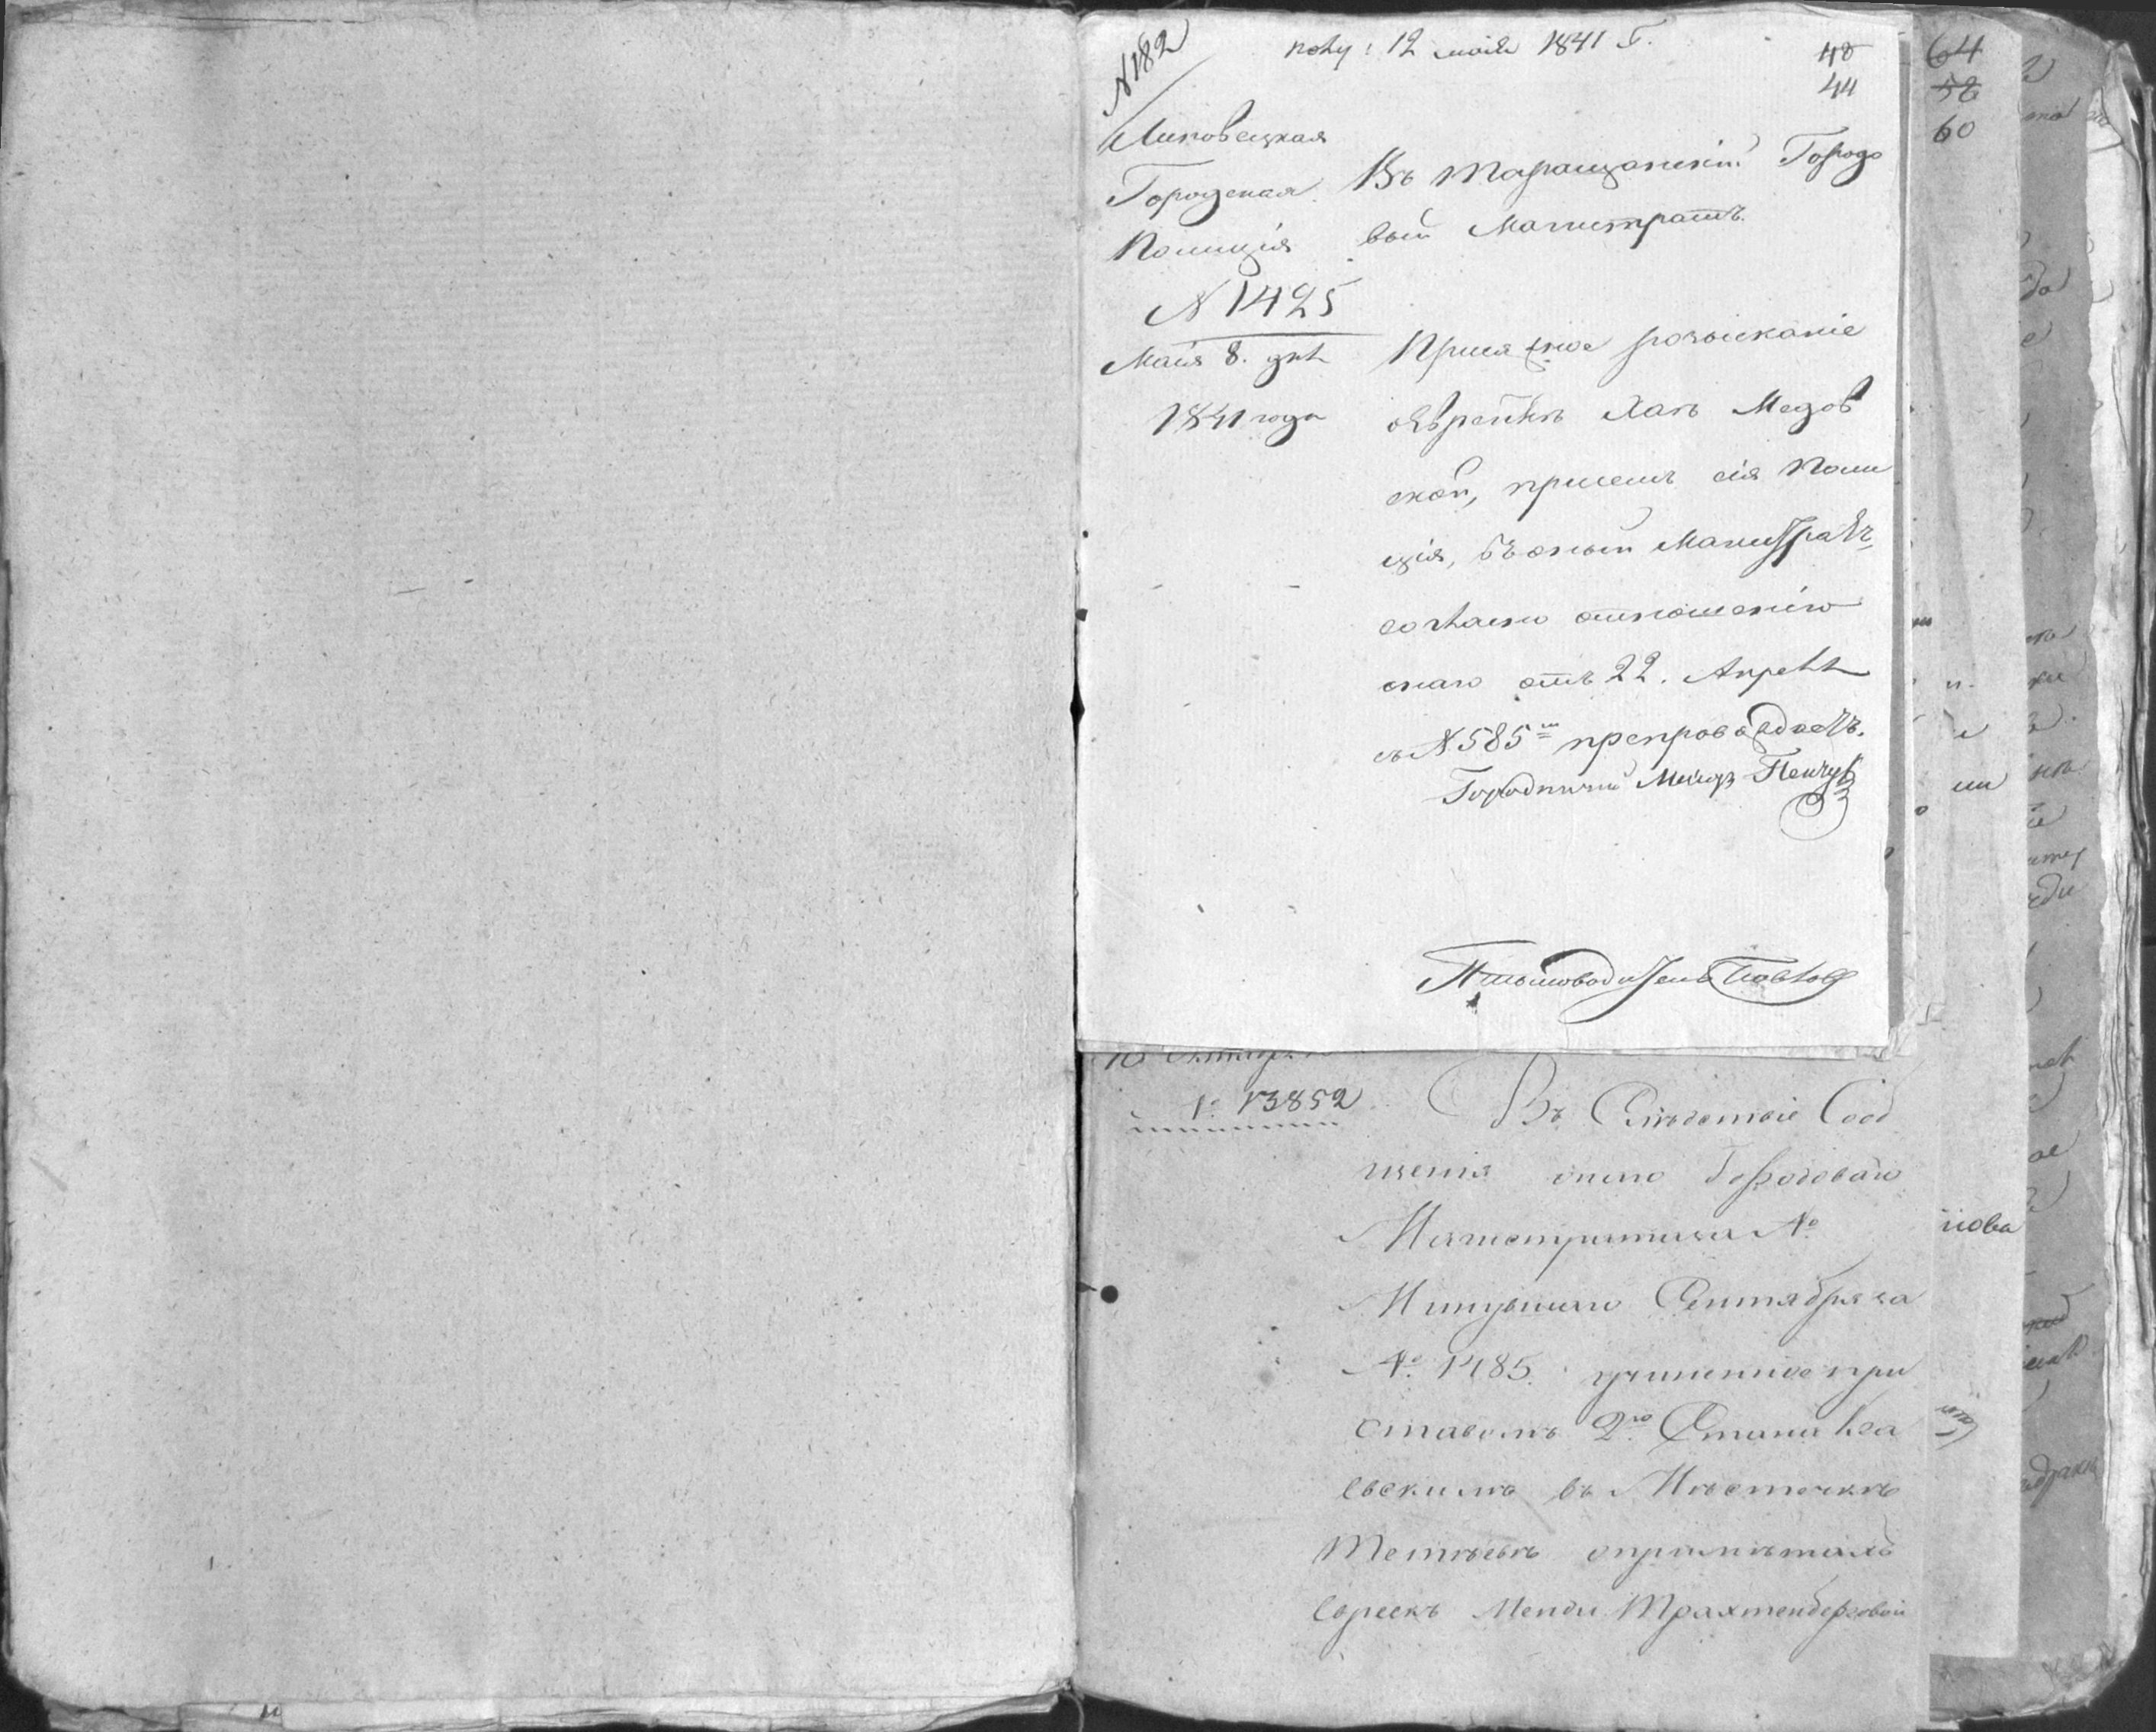 N 182
полу: 12 маія 1841 г.
48
44
64
58
60
Липовецкая
Городская
Полиція
N 1425
Маія 8. дня
1841 года
Въ Таращанскій Городо
вый Магистратъ.
Присяжное розысканіе
о Еврейкѣ Хаѣ Медов
ской, при семъ сія Поли
ція, въ оный Магистратъ
согласно отношенію
онаго отъ 22. Апреля
съ N 585ᵐ препровождаетъ.
Городничий Маіоръ
Письмоводитель Павлов
10 Октября
№ 13852
Въ Слѣдствіе Сооб
щенія оного Городоваго
Магистрата №
Минувшаго Сентября за
№ 1485. учиненное при
ставомъ 2го Стана
евскимъ въ Мѣсточкѣ
Тетіевѣ о примѣтахъ
Евреекъ Менди Трахтенберговой